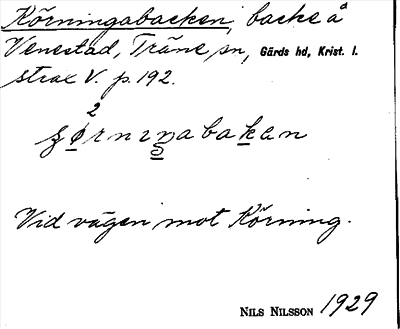 Körningabacken, backe å
Venestad, Träne sn, Gärds hd, Krist. l.
strax V. p. 192.
2
ɡørnıŋabakan
Vid vägen mot Körning.
NILS NILSSON 1929